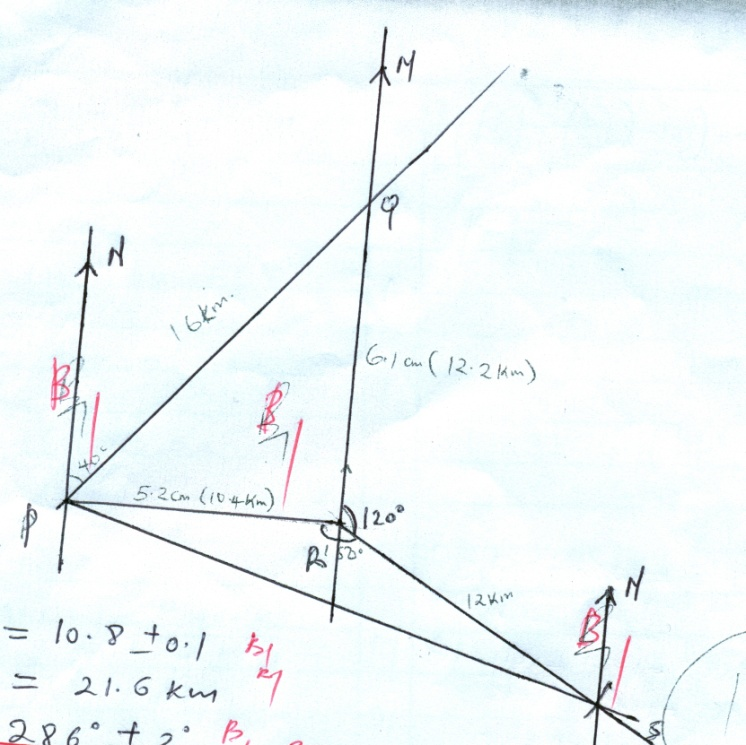 N
Q
16km.
6.1 cm (12.2km)
N
B1
B1
40°
5.2cm (10.4km)
P
120°
R
150°
12km
N
B1
= 10.8 ± 0.1 B1
= 21.6 km B1
S
286° ± 2° B1